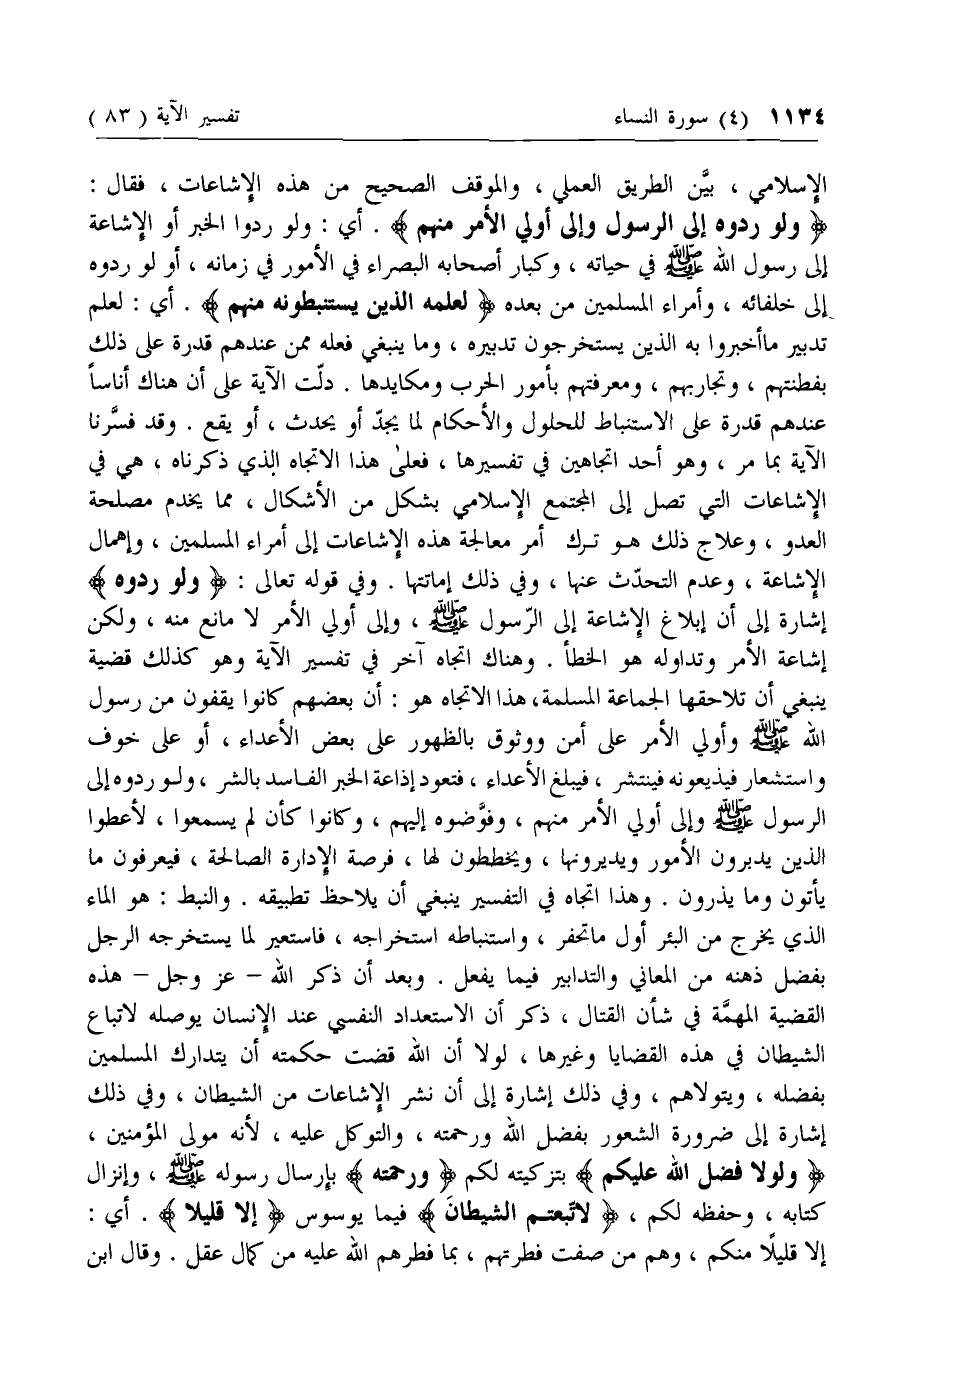 ١١٣٤ (٤) سورة النساء تفسير الآية ( ٨٣ )
الإسلامي ، بيَّن الطريق العملي ، والموقف الصحيح من هذه الإشاعات ، فقال :
﴿ ولو ردوه إلى الرسول وإلى أولي الأمر منهم ﴾ . أي : ولو ردوا الخبر أو الإشاعة
إلى رسول الله ﷺ في حياته ، وكبار أصحابه البصراء في الأمور في زمانه ، أو لو ردوه
إلى خلفائه ، وأمراء المسلمين من بعده ﴿ لعلمه الذين يستنبطونه منهم ﴾ . أي : لعلم
تدبير ماأخبروا به الذين يستخرجون تدبيره ، وما ينبغي فعله ممن عندهم قدرة على ذلك
بفطنتهم ، وتجاربهم ، ومعرفتهم بأمور الحرب ومكايدها . دلّت الآية على أن هناك أناساً
عندهم قدرة على الاستنباط للحلول والأحكام لما يجدّ أو يحدث ، أو يقع . وقد فسَّرنا
الآية بما مر ، وهو أحد اتجاهين في تفسيرها ، فعلىٰ هذا الاتجاه الذي ذكرناه ، هي في
الإشاعات التي تصل إلى المجتمع الإسلامي بشكل من الأشكال ، مما يخدم مصلحة
العدو ، وعلاج ذلك هو ترك أمر معالجة هذه الإشاعات إلى أمراء المسلمين ، وإهمال
الإشاعة ، وعدم التحدّث عنها ، وفي ذلك إماتتها . وفي قوله تعالى : ﴿ ولو ردوه ﴾
إشارة إلى أن إبلاغ الإشاعة إلى الرّسول ﷺ ، وإلى أولي الأمر لا مانع منه ، ولكن
إشاعة الأمر وتداوله هو الخطأ . وهناك اتجاه آخر في تفسير الآية وهو كذلك قضية
ينبغي أن تلاحقها الجماعة المسلمة، هذا الاتجاه هو : أن بعضهم كانوا يقفون من رسول
الله ﷺ وأولي الأمر على أمن ووثوق بالظهور على بعض الأعداء ، أو على خوف
واستشعار فيذيعونه فينتشر ، فيبلغ الأعداء ، فتعود إذاعة الخبر الفاسد بالشر ، ولو ردوه إلى
الرسول ﷺ وإلى أولي الأمر منهم ، وفوَّضوه إليهم ، وكانوا كأن لم يسمعوا ، لأعطوا
الذين يدبرون الأمور ويديرونها ، ويخططون لها ، فرصة الإدارة الصالحة ، فيعرفون ما
يأتون وما يذرون . وهذا اتجاه في التفسير ينبغي أن يلاحظ تطبيقه . والنبط : هو الماء
الذي يخرج من البئر أول ماتحفر ، واستنباطه استخراجه ، فاستعير لما يستخرجه الرجل
بفضل ذهنه من المعاني والتدابير فيما يفعل . وبعد أن ذكر الله – عز وجل – هذه
القضية المهمَّة في شأن القتال ، ذكر أن الاستعداد النفسي عند الإنسان يوصله لاتباع
الشيطان في هذه القضايا وغيرها ، لولا أن الله قضت حكمته أن يتدارك المسلمين
بفضله ، ويتولاهم ، وفي ذلك إشارة إلى أن نشر الإشاعات من الشيطان ، وفي ذلك
إشارة إلى ضرورة الشعور بفضل الله ورحمته ، والتوكل عليه ، لأنه مولى المؤمنين ،
﴿ ولولا فضل الله عليكم ﴾ بتزكيته لكم ﴿ ورحمته ﴾ بإرسال رسوله ﷺ ، وإنزال
كتابه ، وحفظه لكم ، ﴿ لاتّبعتم الشيطانَ ﴾ فيما يوسوس ﴿ إلا قليلا ﴾ . أي :
إلا قليلًا منكم ، وهم من صفت فطرتهم ، بما فطرهم الله عليه من كمال عقل . وقال ابن